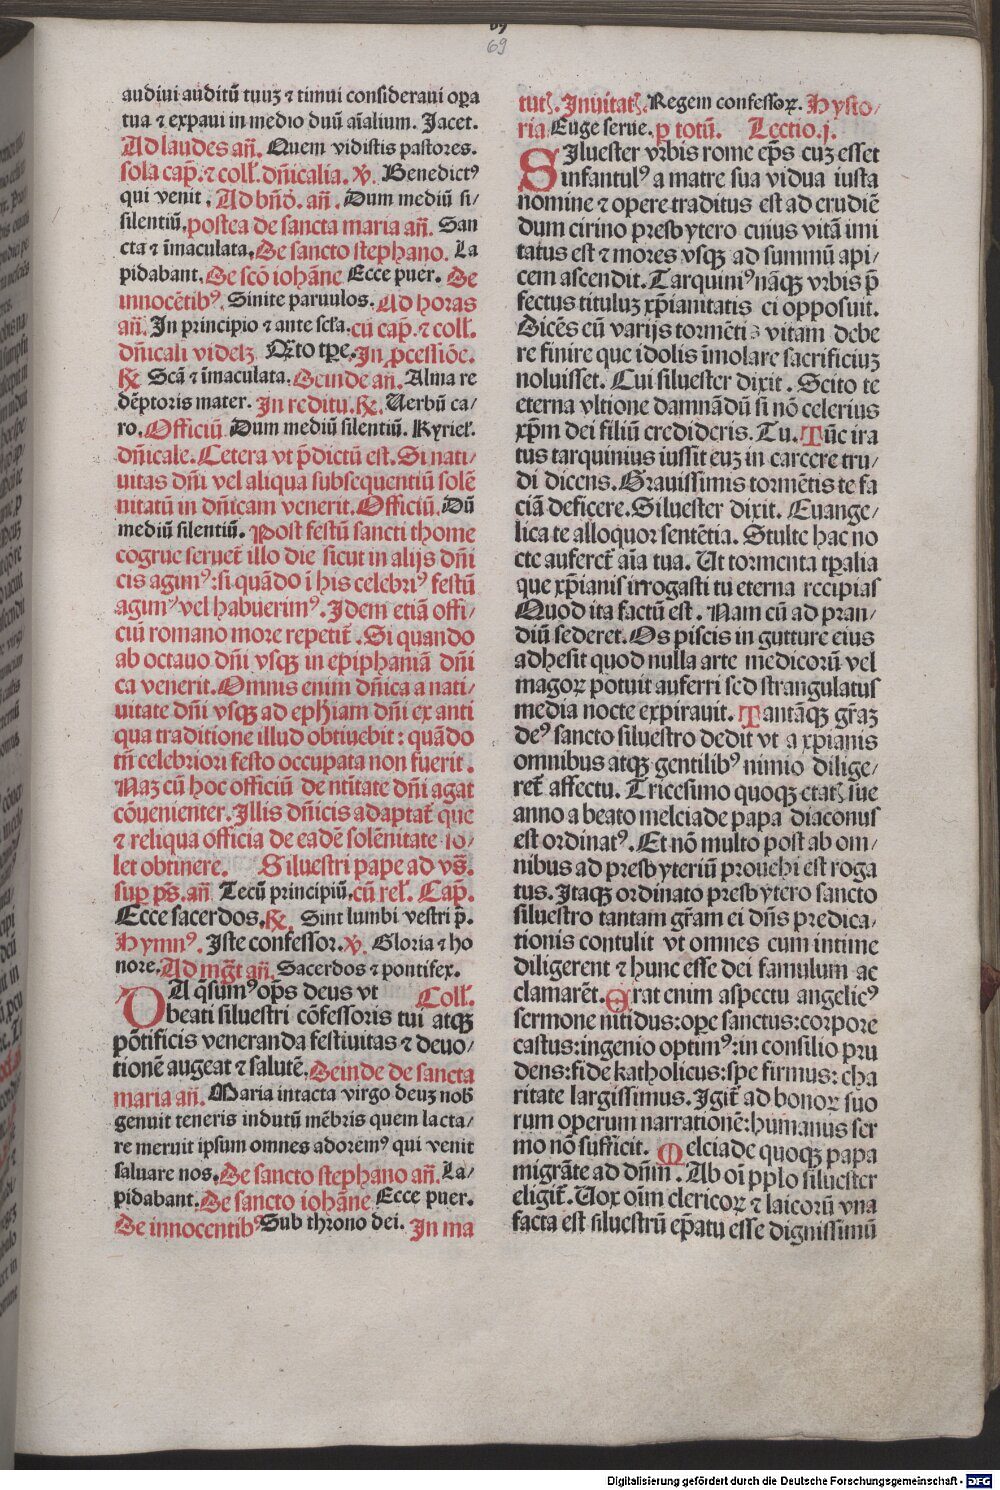 69
audiui auditū tuuʒ ⁊ timui consideraui oꝑa
tua ⁊ expaui in medio duū aīalium. Jacet.
Ad laudes añ. Quem vidistis pastores.
sola cap̄. ⁊ coll̄. dn̄icalia. ℣. Benedictꝰ
qui venit. Ad bn̄d. añ. Dum mediū si/
silentiū. postea de sancta maria añ. San
cta ⁊ īmaculata. De sancto stephano. La
pidabant. De scō iohāne Ecce puer. De
innocētibꝰ. Sinite paruulos. Ad horas
añ. In principio ⁊ ante scl̄a. cū cap̄. ⁊ coll̄.
dn̄icali videlʒ Qr̄to tꝑe. In ꝓcessiōe.
℟ Scā ⁊ īmaculata. Deinde añ. Alma re
dēptoris mater. In reditu. ℟. Uerbū ca/
ro. Officiū Dum mediū silentiū. Kyriel̄.
dn̄icale. Cetera vt p̄dictū est. Si nati/
uitas dn̄i vel aliqua subsequentiū solē
nitatū in dn̄icam venerit. Officiū. Dū
mediū silentiū. Post festū sancti thome
cogrue seruet̄ illo die sicut in alijs dn̄i
cis agimꝰ: si quādo ī his celebriꝰ festū
agimꝰ vel habuerimꝰ. Idem etiā offi/
ciū romano more repetit̄. Si quando
ab octauo dn̄i vsqꝫ in epiphaniā dn̄i
ca venerit. Omnis enim dn̄ica a nati/
uitate dn̄i vsqꝫ ad ephiam dn̄i ex anti
qua traditione illud obtiuebit: quādo
tn̄ celebriori festo occupata non fuerit.
Naʒ cū hoc officiū de ntītate dn̄i agat
cōuenienter. Illis dn̄icis adaptat̄ que
⁊ reliqua officia de eadē solēnitate so/
let obtinere. Siluestri pape ad vs̄.
suꝑ ps̄. añ Tecū principiū. cū rel̄. Cap̄.
Ecce sacerdos. ℟. Sint lumbi vestri p̄.
Hymnꝰ. Iste confessor. ℣. Gloria ⁊ ho
nore. Ad mgt̄ añ. Sacerdos ⁊ pontifex.
DA q̄sumꝰ op̄s deus vt Coll̄.
beati siluestri cōfessoris tui atqꝫ
pōtificis veneranda festiuitas ⁊ deuo/
tionē augeat ⁊ salutē. Deinde de sancta
maria añ. Maria intacta virgo deuʒ nob̄
genuit teneris indutū mēbris quem lacta/
re meruit ipsum omnes adoremꝰ qui venit
saluare nos. De sancto stephano añ. La/
pidabant. De sancto iohāne Ecce puer.
De innocentibꝰ Sub throno dei. In ma
tutꝭ. Inuitatꝭ. Regem confessoꝝ. Hysto/
ria Euge serue. ꝑ totū. Lectio. j.
SIluester vrbis rome ep̄s cuʒ esset
infantulꝰ a matre sua vidua iusta
nomine ⁊ opere traditus est ad erudiē
dum cirino presbytero cuius vitā imi
tatus est ⁊ mores vsqꝫ ad summū api/
cem ascendit. Tarquiniꝰ nāqꝫ vrbis p̄
fectus tituluʒ xp̄ianitatis ei opposuit.
Dicēs eū varijs tormētis vitam debe
re finire que idolis īmolare sacrificiuʒ
noluisset. Cui siluester dixit. Scito te
eterna vltione damnādū si nō celerius
xp̄m dei filiū credideris. Tu. Tūc ira
tus tarquinius iussit euʒ in carcere tru/
di dicens. Grauissimis tormētis te fa
ciā deficere. Siluester dixit. Euange/
lica te alloquor sentētia. Stulte hac no
cte auferet̄ aīa tua. Ut tormenta tꝑalia
que xp̄ianis irrogasti tu eterna recipias
Quod ita factū est. Nam cū ad pran/
diū sederet. Os piscis in gutture eius
adhesit quod nulla arte medicorū vel
magoꝝ potuit auferri sed strangulatus
media nocte expirauit. Tantāqꝫ gr̄aʒ
deꝰ sancto siluestro dedit vt a xp̄ianis
omnibus atqꝫ gentilibꝰ nimio dilige/
ret̄ affectu. Tricesimo quoqꝫ etatꝭ sue
anno a beato melciade papa diaconus
est ordinatꝰ. Et nō multo post ab om/
nibus ad presbyteriū prouehi est roga
tus. Itaqꝫ ordinato presbytero sancto
siluestro tantam gr̄am ei dn̄s predica/
tionis contulit vt omnes eum intime
diligerent ⁊ hunc esse dei famulum ac
clamarēt. Erat enim aspectu angelicꝰ
sermone nitidus: ope sanctus: corpore
castus: ingenio optimꝰ: in consilio pru
dens: fide katholicus: spe firmus: cha
ritate largissimus. Igit̄ ad honoꝝ suo
rum operum narrationē: humanus ser
mo nō sufficit. Melciade quoqꝫ papa
migrāte ad dn̄m. Ab oī pplo siluester
eligit̄. Uox oīm clericoꝝ ⁊ laicorū vna
facta est siluestrū ep̄atu esse dignissimū
Digitalisierung gefördert durch die Deutsche Forschungsgemeinschaft - DFG